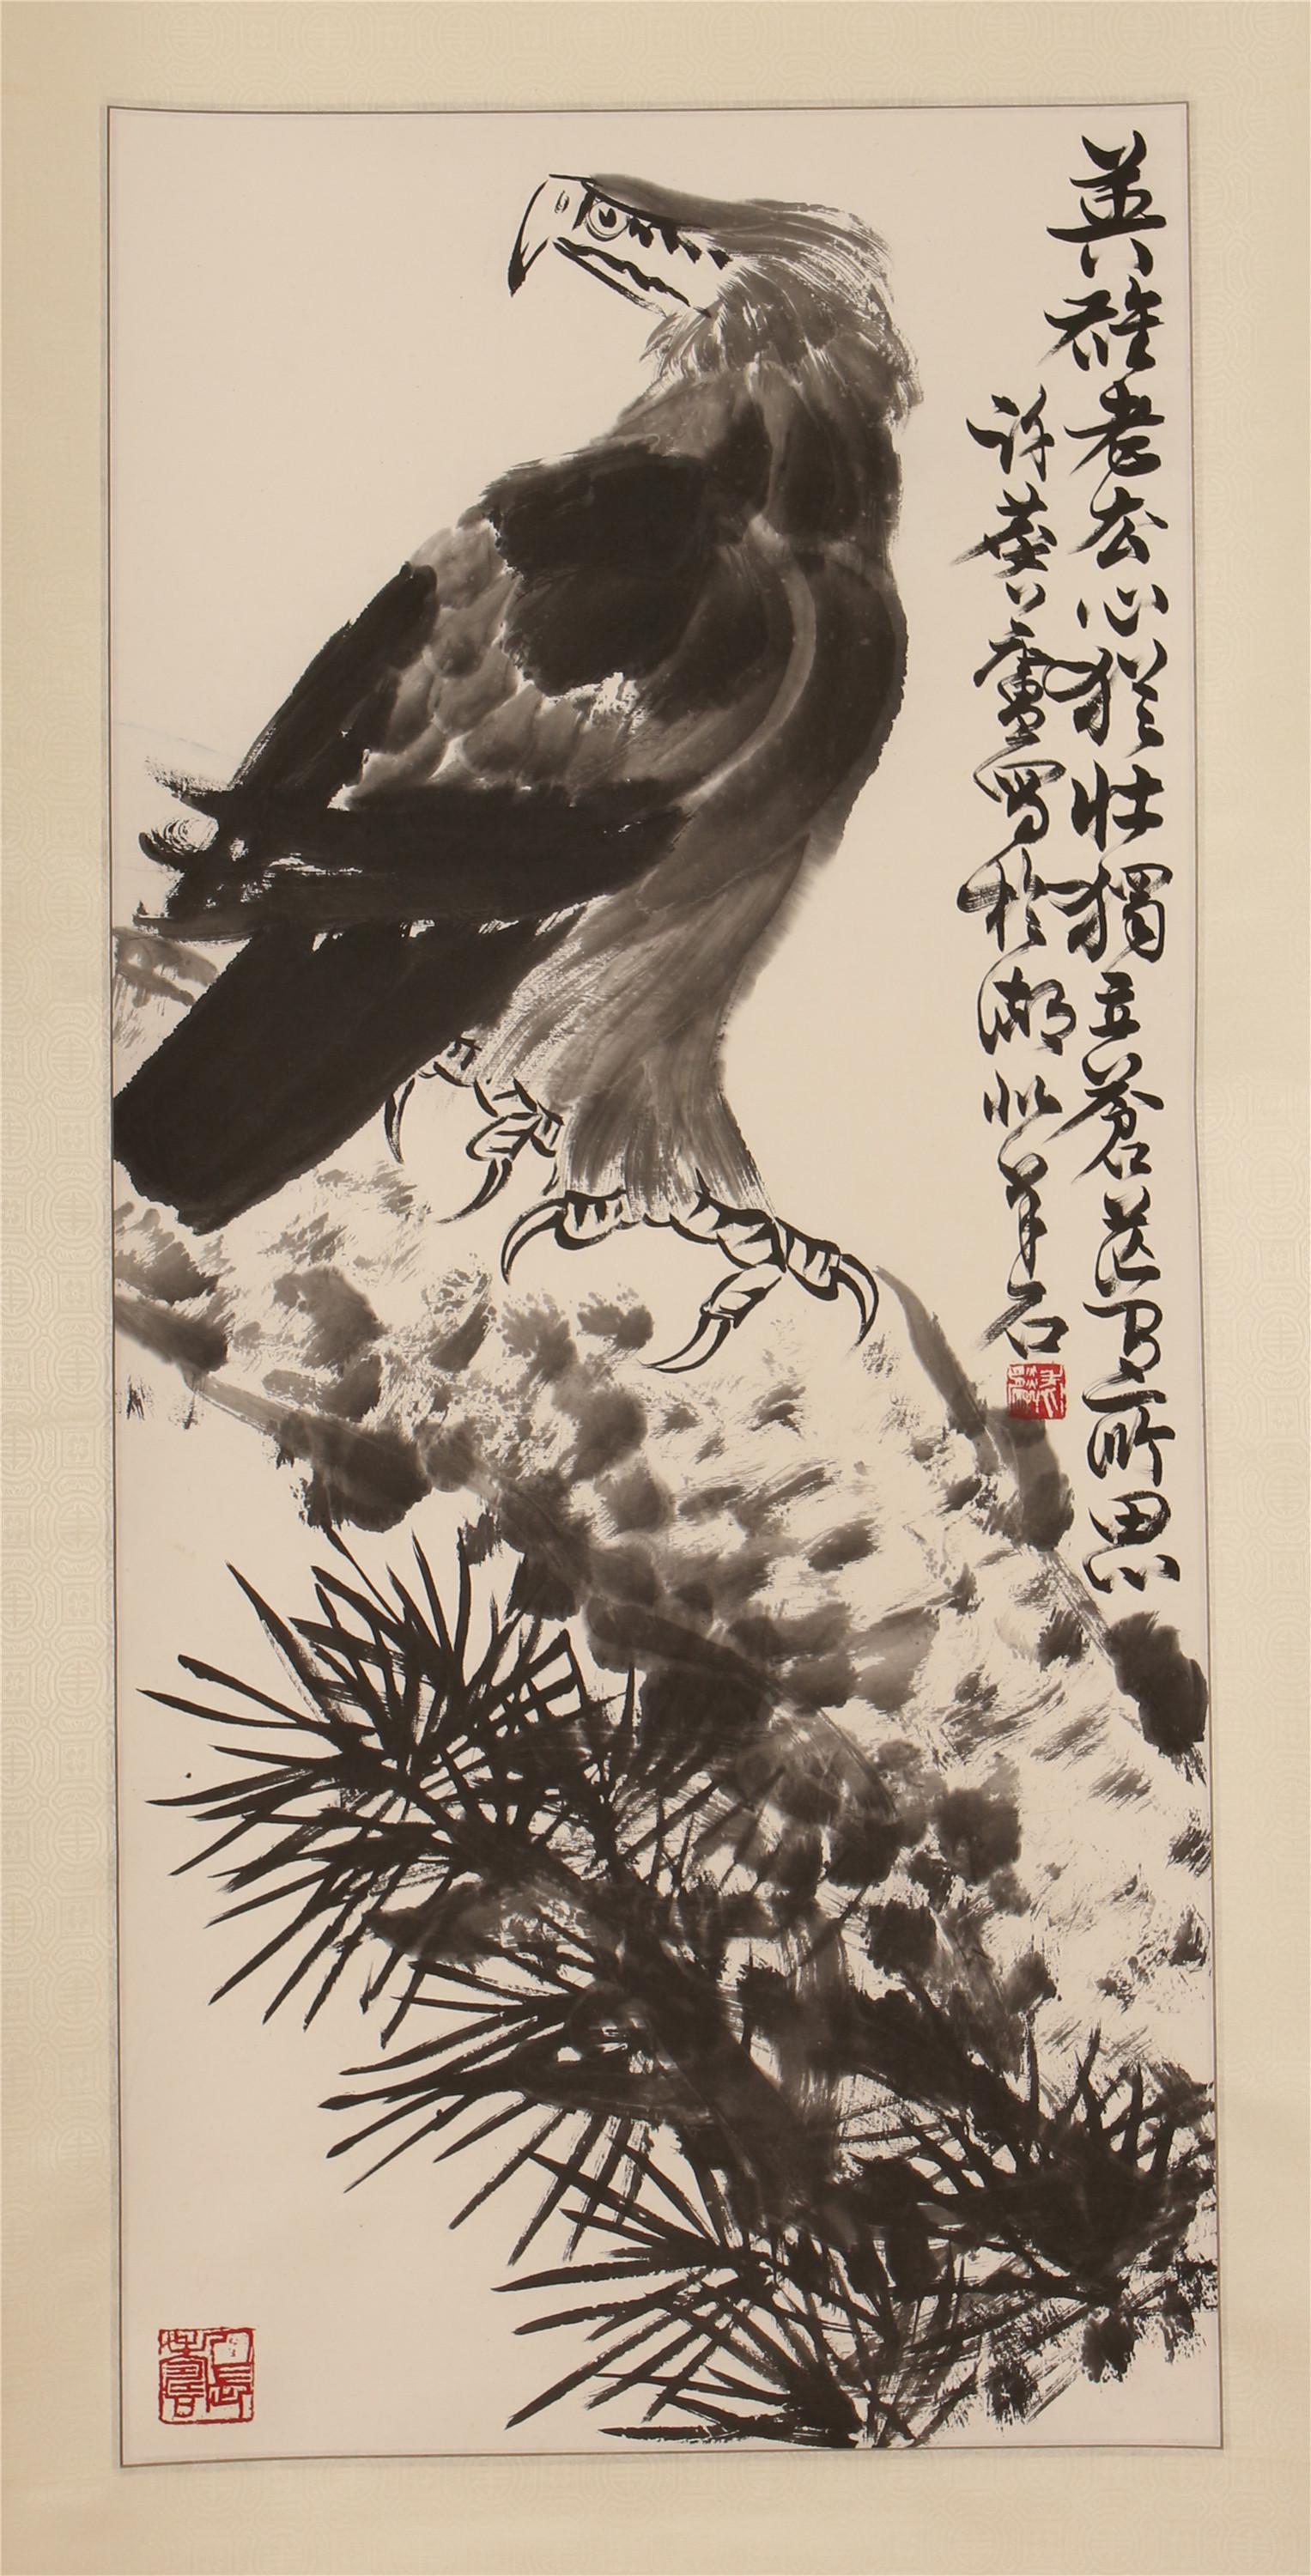 英雄老去心猶壯獨立蒼茫有所思
許葵廬寫於湖北羊石